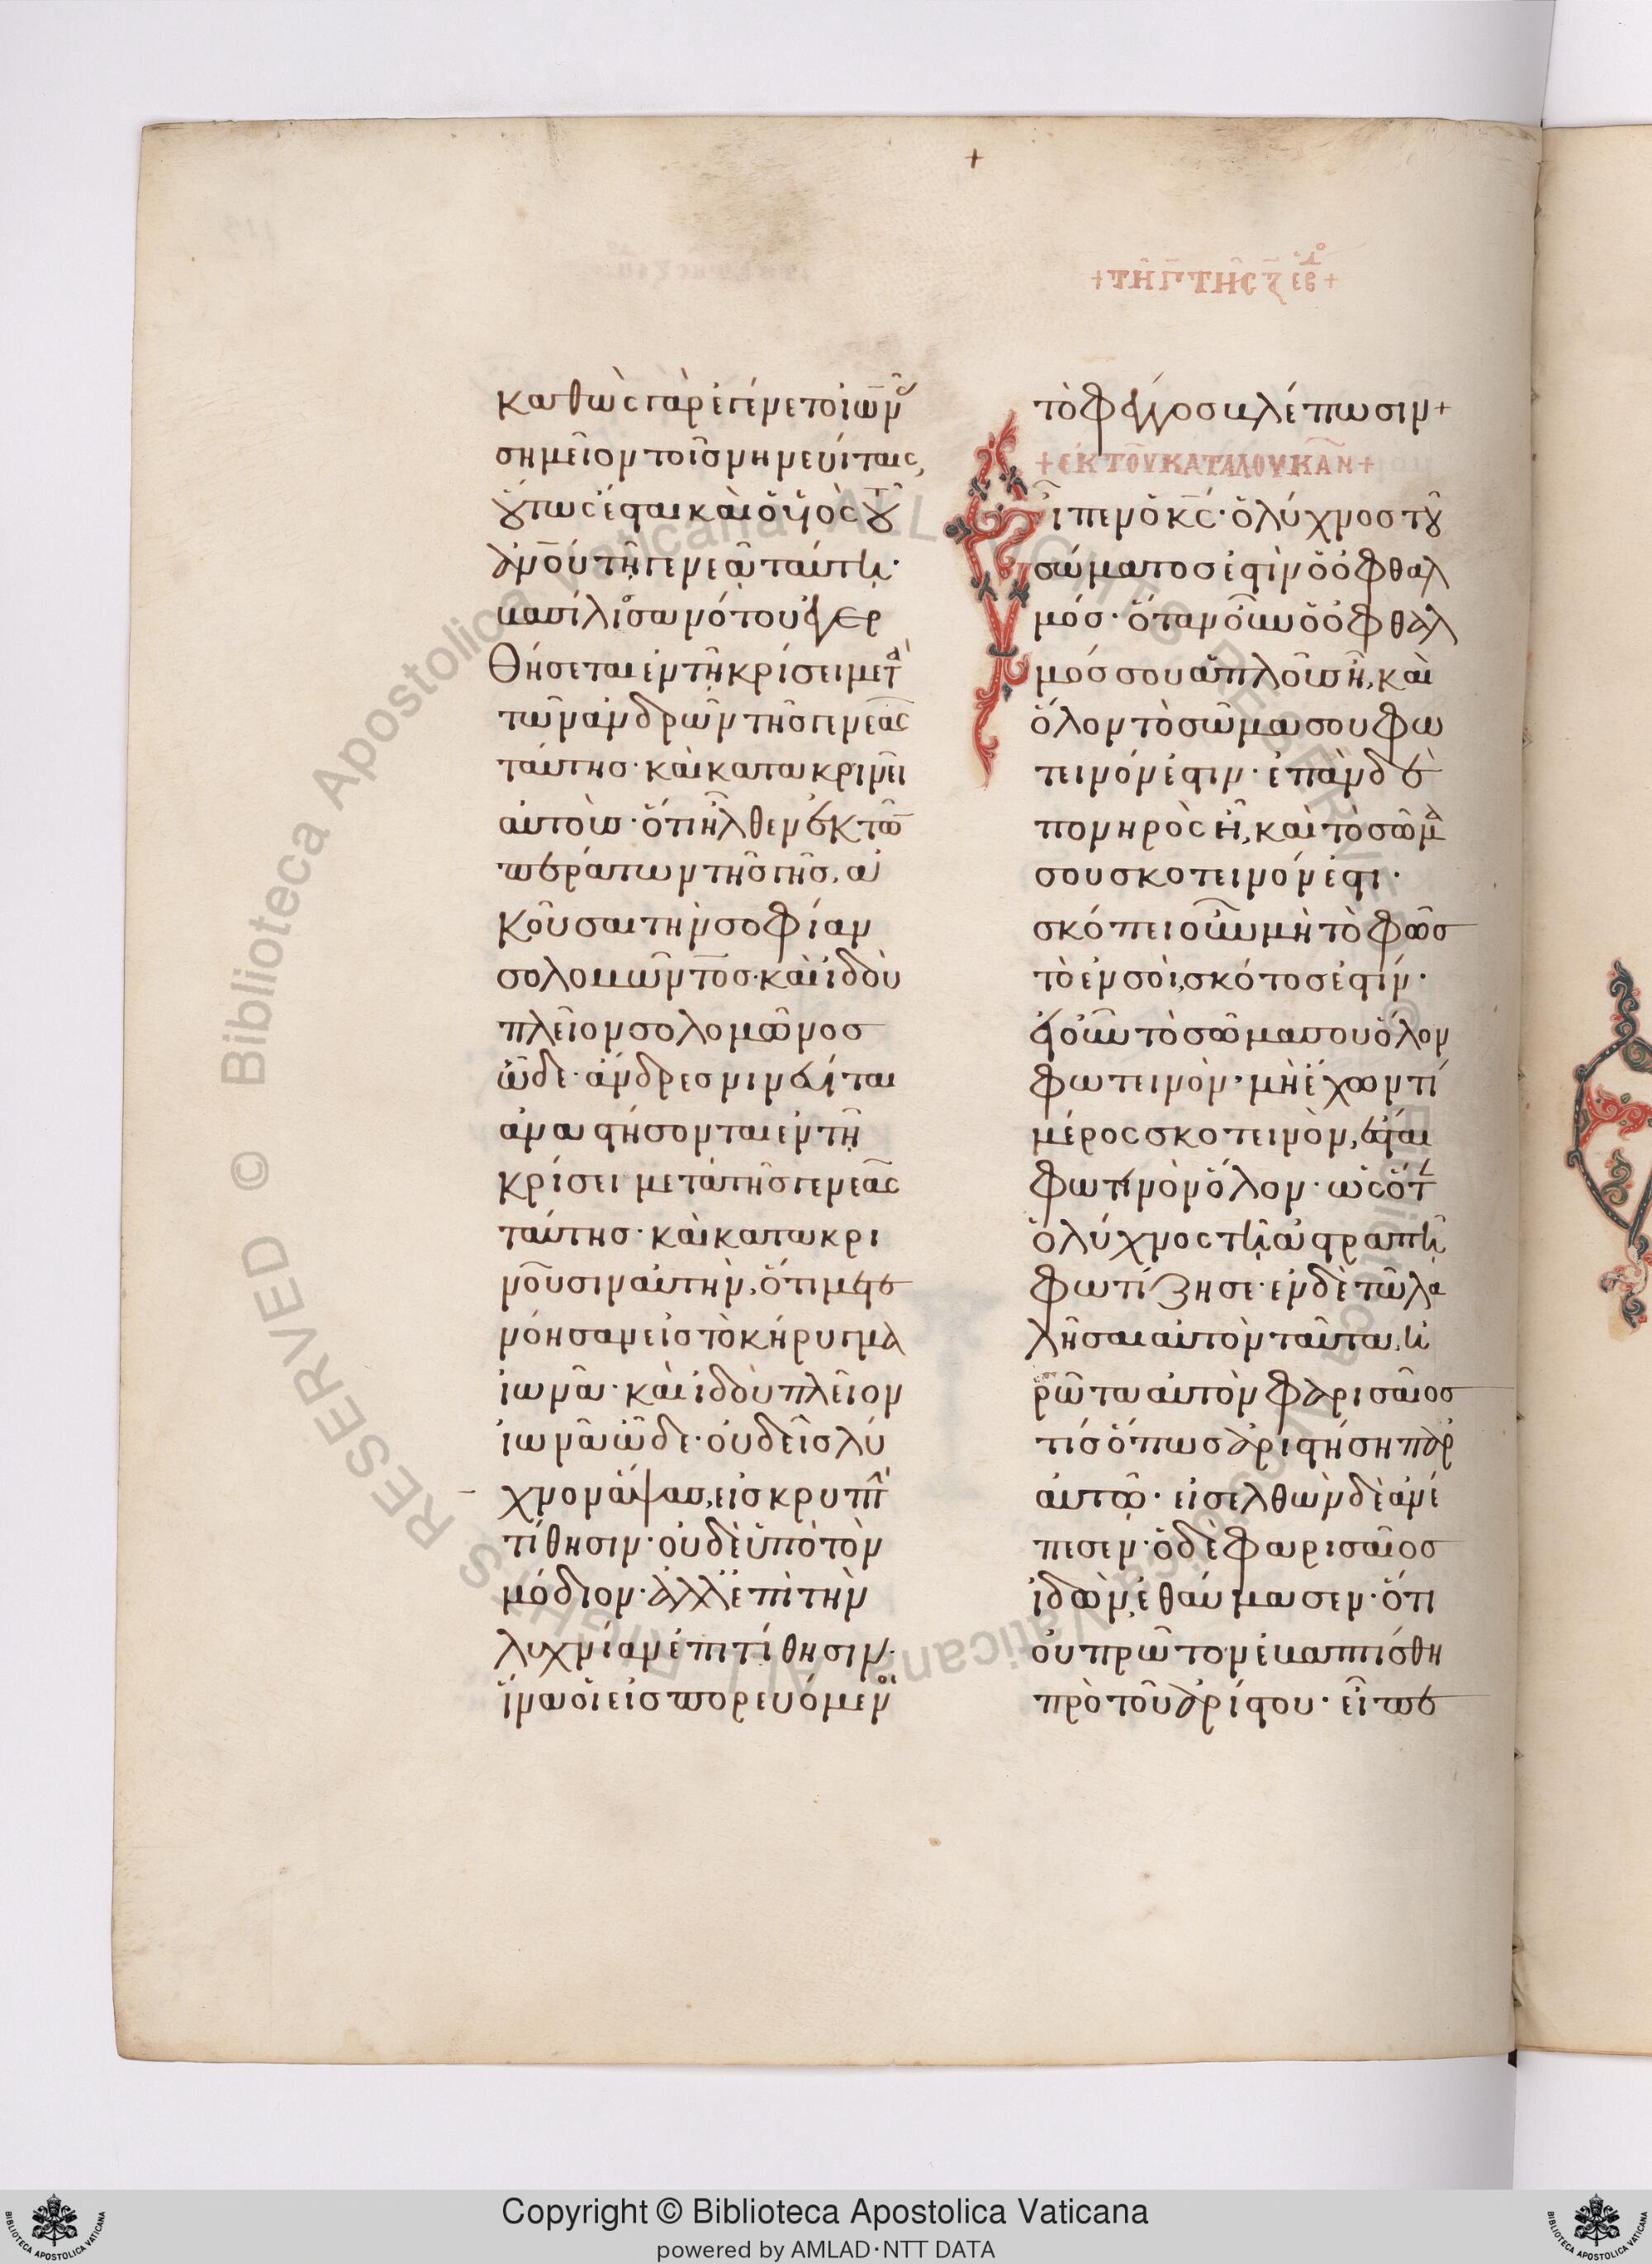 +
+τῆ γ̅ τῆς ζ̅ ἑβ+
καθὼς γὰρ ἐγένετο ἰων
σημεῖον τοῖς νηνευίταις,
οὕτως ἔσται καὶ ὁ υἱὸς τοῦ
ἀνου τῆ γενεᾶ ταύτη·
βασίλισσα νότου ἐγερ
θήσεται ἐν τῆ κρίσει μετ
τῶν ἀνδρῶν τῆς γενεᾶς
ταύτης· καὶ κατακρινεῖ
αὐτοὺς· ὅτι ἦλθεν ἐκ τῶν
περάτων τῆς γῆς, ἀ
κοῦσαι τὴν σοφίαν
σολομῶντος· καὶ ἰδοὺ
πλεῖον σολομῶνος
ὧδε· ἄνδρες νινευίται
ἀναστήσονται ἐν τῆ
κρίσει μετὰ τῆς γενεᾶς
ταύτης· καὶ κατακρι
νοῦσιν αὐτὴν, ὅτι μετε
νόησαν εἰς τὸ κήρυγμα
ἰωνᾶ· καὶ ἰδοὺ πλεῖον
ἰωνᾶ ὧδε· οὐδεὶς λύ
χνον ἅψας, εἰς κρυπτ
τίθησιν· οὐδὲ ὑπὸ τὸν
μόδιον· ἀλλ' ἐπὶ τὴν
λυχνίαν ἐπιτίθησιν·
ἵνα οἱ εἰσπορευόμεν
τὸ φέγγος βλέπωσιν+
+ἐκ τοῦ κατὰ λουκᾶν+
Εἶπεν ὁ κς· ὁ λύχνος τοῦ
σώματος ἐστὶν ὁ ὀφθαλ
μός· ὅταν οὖν ὁ ὀφθαλ
μός σου ἁπλοῦς ἦ, καὶ
ὅλον τὸ σῶμα σου φω
τεινόν ἐστιν· ἐπὰν δὲ
πονηρὸς ἦ, καὶ τὸ σῶμα
σου σκοτεινόν ἐστι·
σκόπει οὖν μὴ τὸ φῶς
τὸ ἐν σοὶ, σκότος ἐστίν·
εἰ οὖν τὸ σῶμα σου ὅλον
φωτεινὸν· μὴ ἔχων τί
μέρος σκοτεινὸν, ἔσται
φωτεινὸν ὅλον· ὡς ὅτ
ὁ λύχνος τῆ ἀστραπῆ
φωτίζη σε· ἐν δὲ τῶ λα
λῆσαι αὐτὸν ταῦτα, ἠ
ρῶτα αὐτὸν φαρισαῖος
τίς ὅπως ἀριστήση παρ
αὐτῶ· εἰσελθὼν δὲ ἀνέ
πεσεν· ὁ δὲ φαρισαῖος
ἰδὼν, ἐθαύμασεν· ὅτι
οὐ πρῶτον ἐβαπτίσθη
πρὸ τοῦ ἀρίστου· εἶπε
Copyright © Biblioteca Apostolica Vaticana
powered by AMLAD·NTT DATA
© Biblioteca Apostolica Vaticana ALL RIGHTS RESERVED
BIBLIOTECA APOSTOLICA VATICANA
BIBLIOTECA APOSTOLICA VATICANA